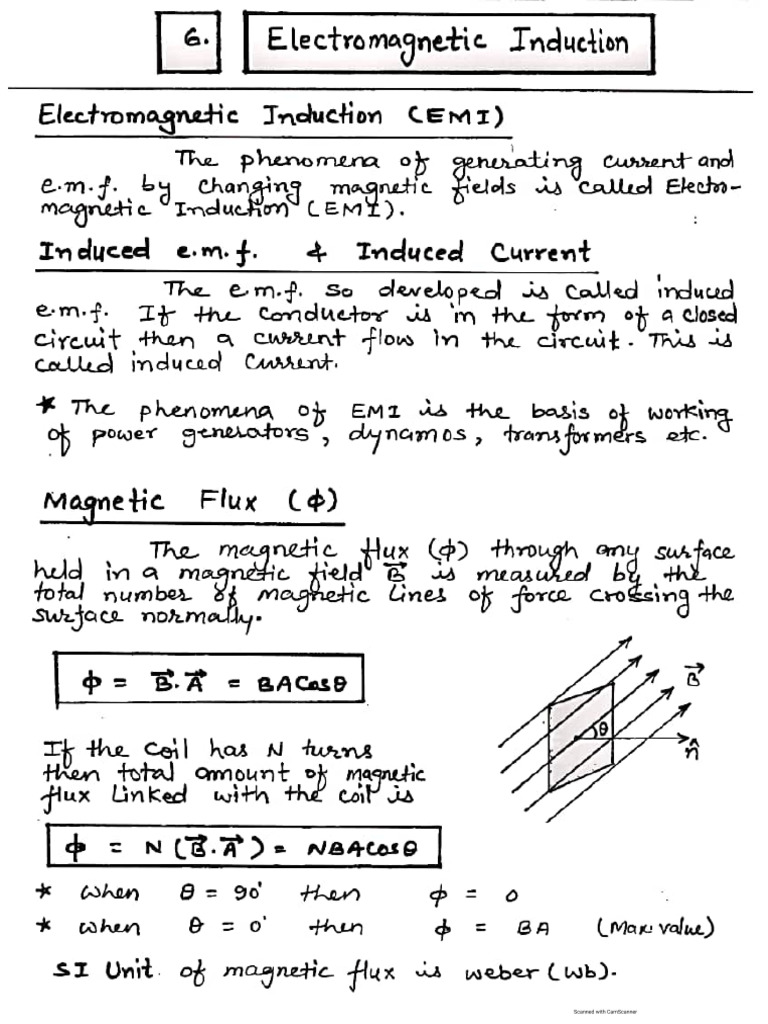 6. Electromagnetic Induction
Electromagnetic Induction (EMI)
The phenomena of generating current and
e.m.f. by changing magnetic fields is called Electro-
magnetic Induction (EMI).
Induced e.m.f. & Induced Current
The e.m.f. so developed is called induced
e.m.f. If the conductor is in the form of a closed
circuit then a current flow in the circuit. This is
called induced current.
* The phenomena of EMI is the basis of working
of power generators, dynamos, transformers etc.
Magnetic Flux (ϕ)
The magnetic flux (ϕ) through any surface
held in a magnetic field B⃗ is measured by the
total number of magnetic lines of force crossing the
surface normally.
ϕ = B⃗.A⃗ = BACosθ
B⃗
θ
n̂
If the coil has N turns
then total amount of magnetic
flux linked with the coil is
ϕ = N(B⃗.A⃗) = NBACosθ
* when θ = 90° then ϕ = 0
* when θ = 0° then ϕ = BA (Max. value)
SI Unit of magnetic flux is weber (Wb).
Scanned with CamScanner